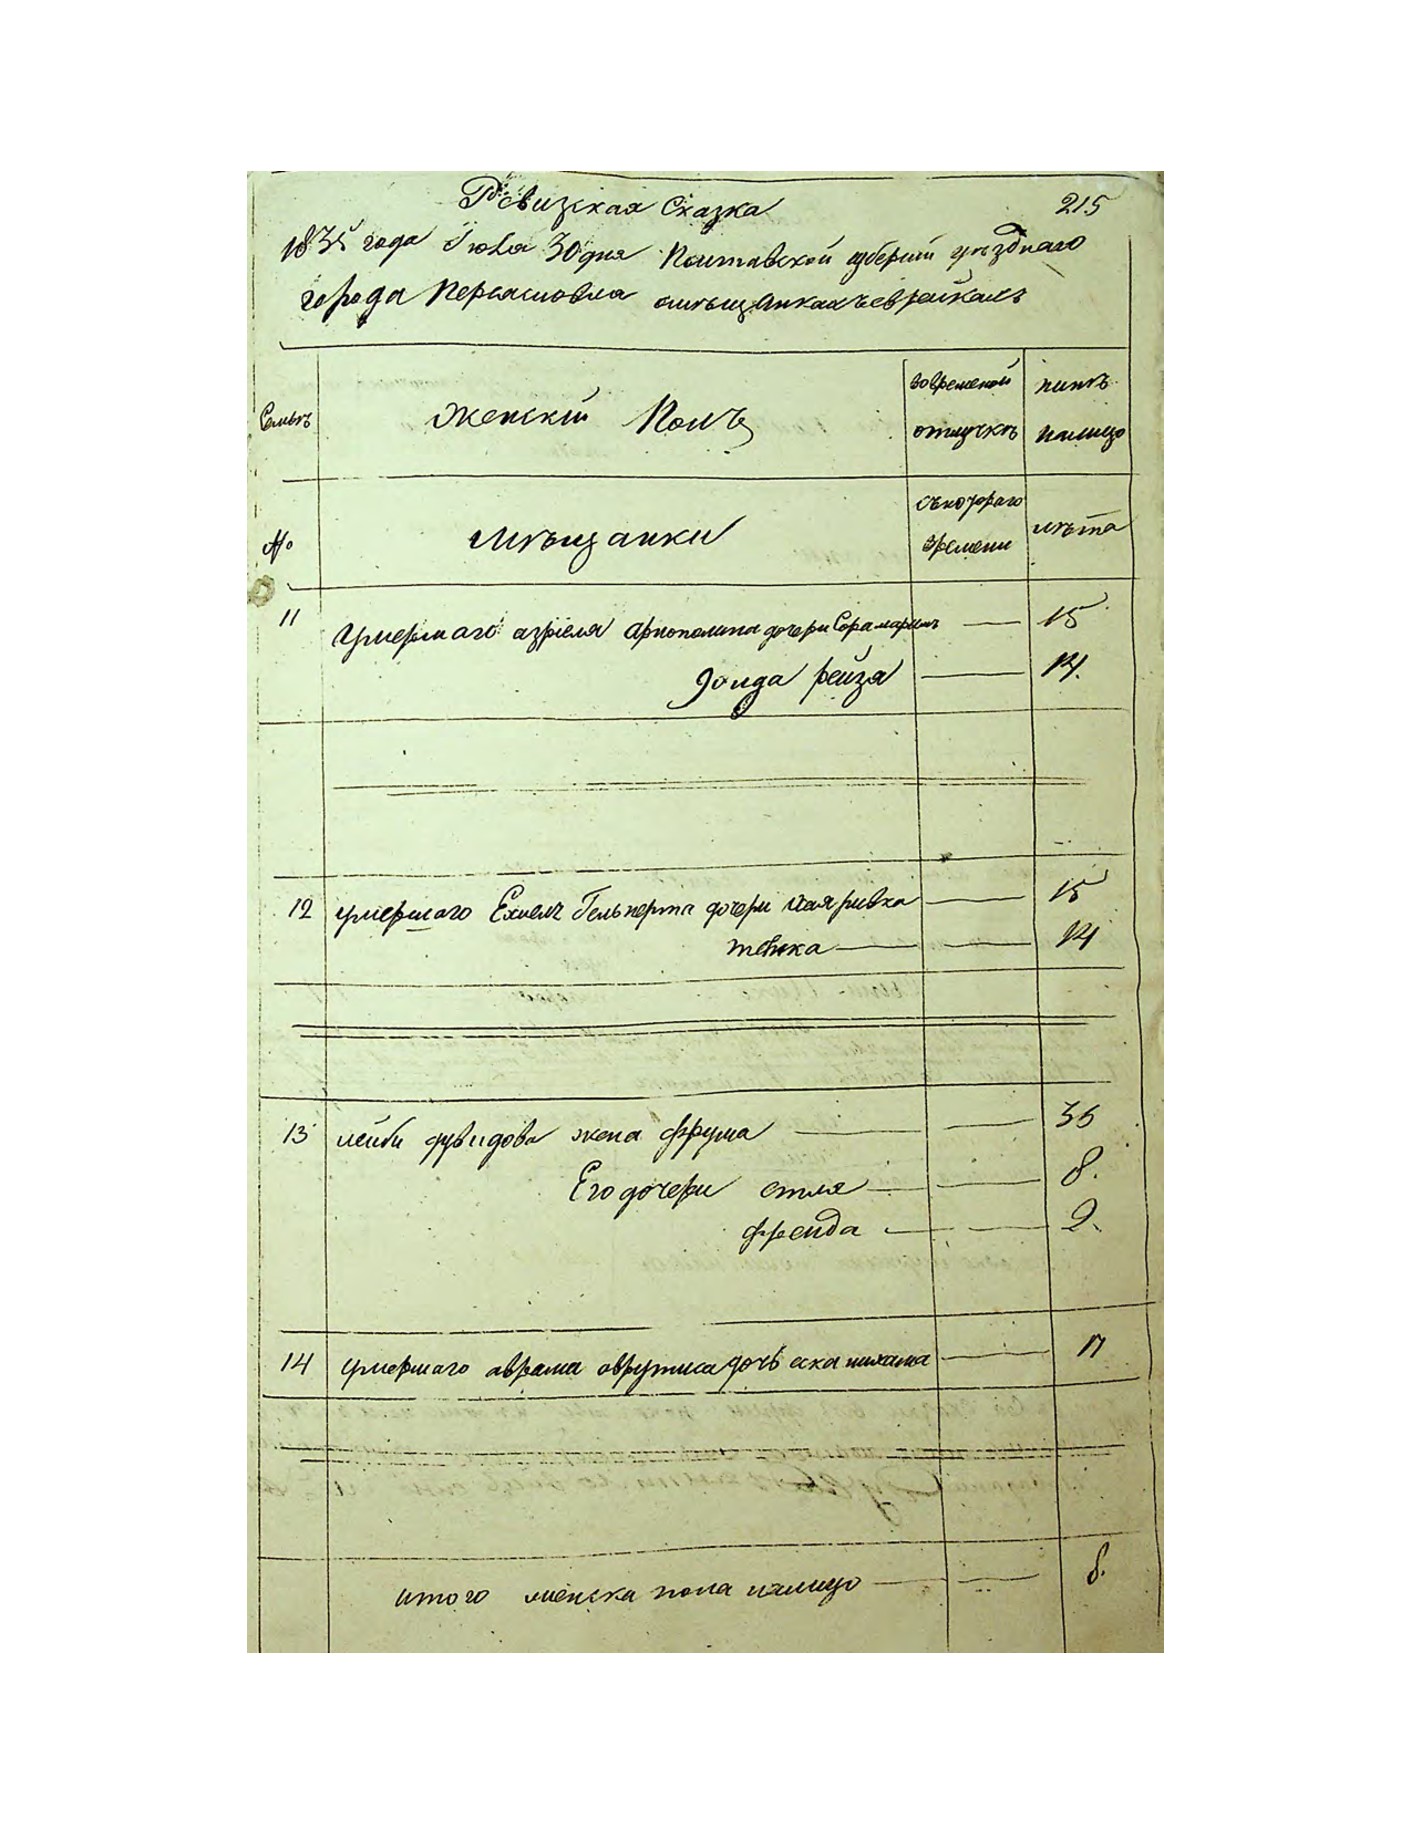 Ревизская Сказка 215
1835 года Июля 30 дня Полтавской губернии уѣзднаго
города Переяславля омѣщанкахъ еврейкахъ
Семьи Женскій Полъ вовременой нынѣ
отлучкѣ налицо
№ Мѣщанки съкотораго лѣта
времени
11 Умершаго азріеля дочери Сора 15
Голда рейза 14.
12 умершаго Ехиель Гельперта дочери Хая ривка 15
14
13 лейби жена фрума 35
Его дочери етля 8.
фрейда 2.
14 умершаго аврама аврутиса дочь 17
итого женска пола налицо 8.